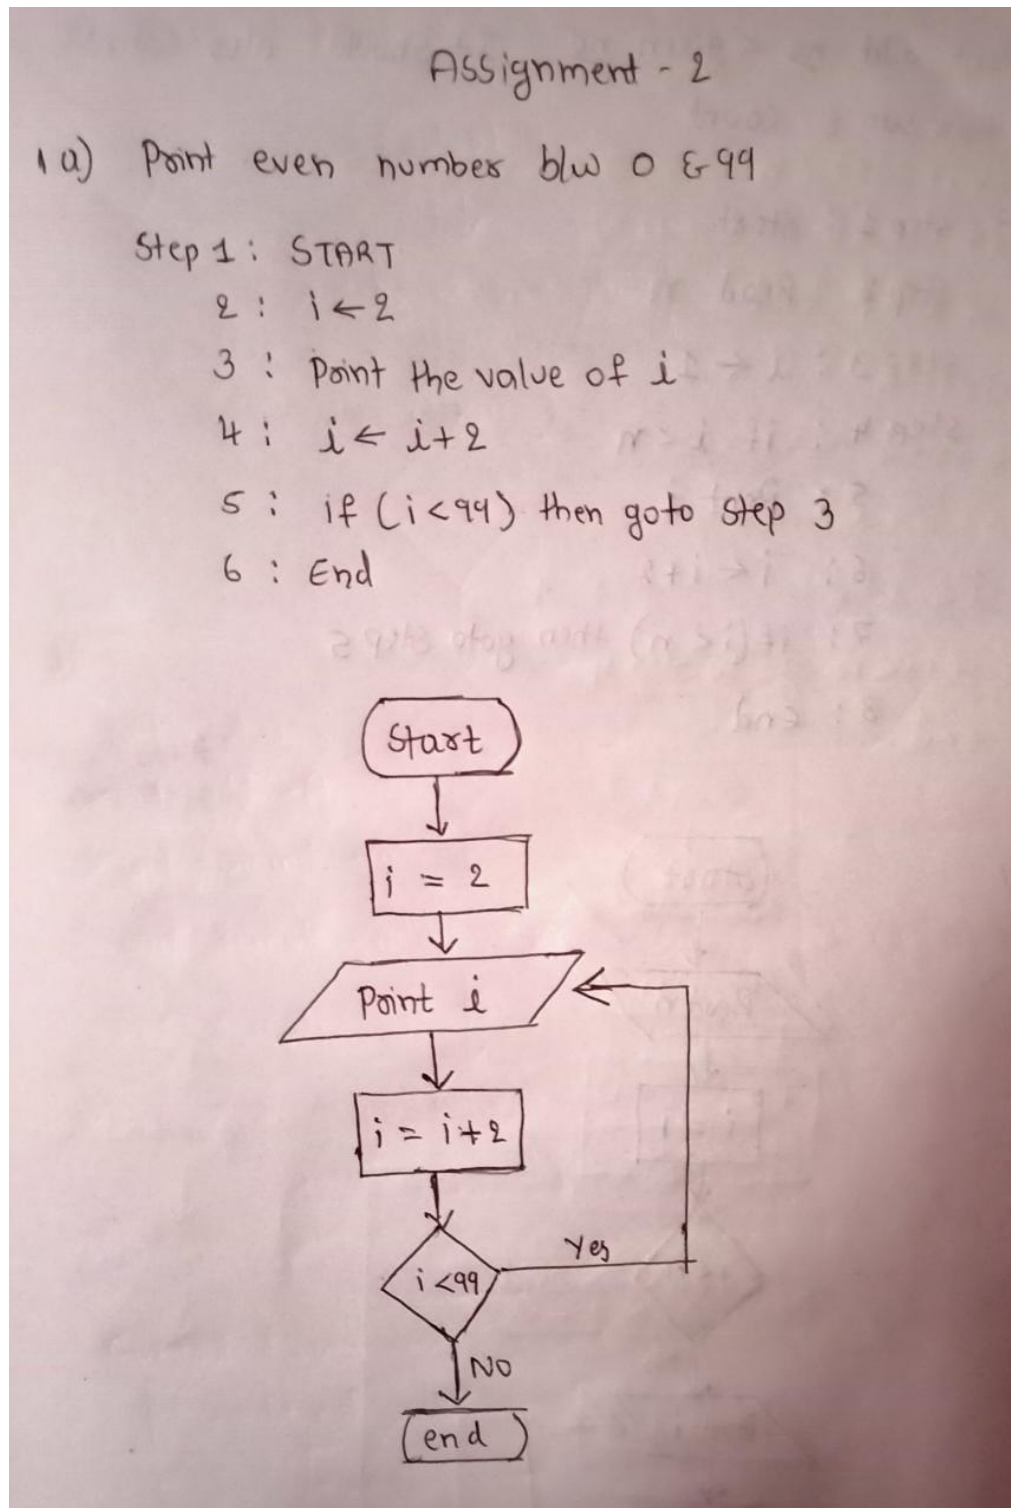 Assignment - 2
1 a) Print even number b/w 0 & 99
Step 1 : START
2 : i ← 2
3 : Print the value of i
4 : i ← i+2
5 : if (i<99) then goto step 3
6 : End
Start
i = 2
Print i
i = i+2
Yes
i <99
NO
end